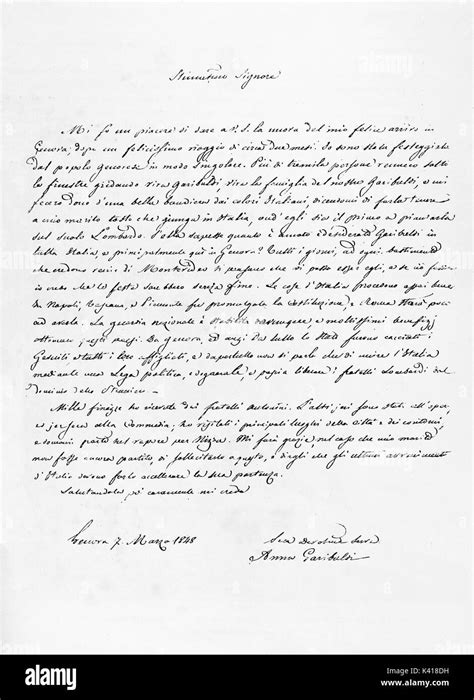 Stimatmo Signore
Mi fo un piacere di dare a V. S. la nuova del mio felice arrivo in
Genova, dopo un felicissimo viaggio di circa due mesi. Io sono stata festeggiata
dal popolo genovese in modo singolare. Più di tremila persone vennero sotto
le finestre gridando viva Garibaldi viva la famiglia del nostro Garibaldi, e mi
fecero dono d'una bella bandiera dai colori Italiani, dicendomi di farlo tenere
a mio marito tosto che giunga in Italia, ond'egli sia il primo a piantarla
sul suolo Lombardo. Se ella sapesse quanto è amato e desiderato Garibaldi in
tutta Italia, e principalmente quì in Genova! Tutti i giorni, ad ogni bastimento
che credono venir di Montevideo si pensano che di posso esser egli, e se ciò fosse
io credo che le feste sarebbero senza fine. Le cose d'Italia procedono assai bene
In Napoli, Toscana, e Piemonte fu promulgata la Costituzione, e Roma
ad averla. La guardia nazionale è stabilita e moltissimi benefizj
ottennero questi paesi. Da Genova, ed anzi da tutto lo Stato furono cacciati i
Gesuiti e tutti i loro affigliati, e dapertutto non si parla che di unire l'Italia
mediante una Lega politica, e doganale, e poscia liberare i fratelli Lombardi dal
dominio dello Straniero
Mille finezze ho ricevute dai fratelli Antonini. L'altro jeri sono stata all'opera,
e jeri sera alla Commedia; ho visitati i principali luoghi della città e dei contorni,
e domani parto col vapore per Nizza. Mi farà grazia, nel caso che mio marito
non fosse ancora partito, di sollecitarlo a questo, e dirgli che gli ultimi avvenimenti
d'Italia devono farlo accellerare la sua partenza.
Salutandola caramente mi creda
Genova 7. Marzo 1848
Sua Devotma Serva
Anna Garibaldi
alamy
a
www.alamy.com
K418DH